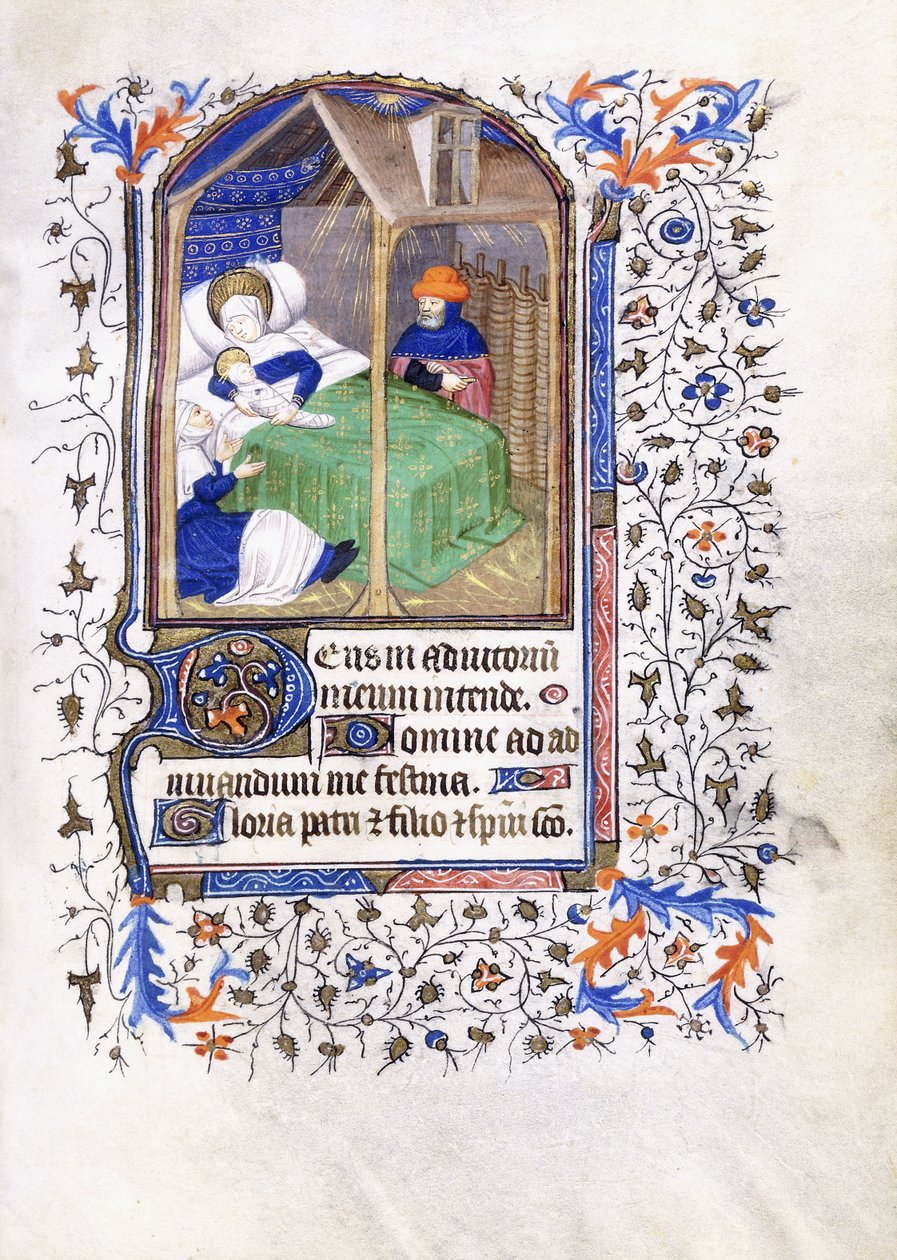 Deus in adiutoriū
meum intende.
Domine ad ad
iuuandum me festina.
Gloria patri ⁊ filio ⁊ spūi sc̄o.